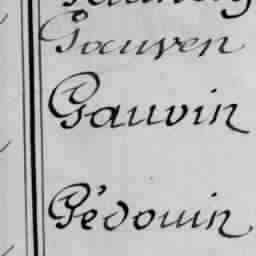 Gouven
Gauvin
Gédouin